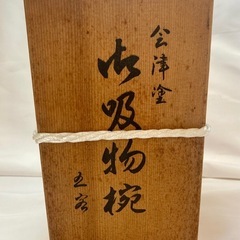 会津塗
御吸物椀
五客